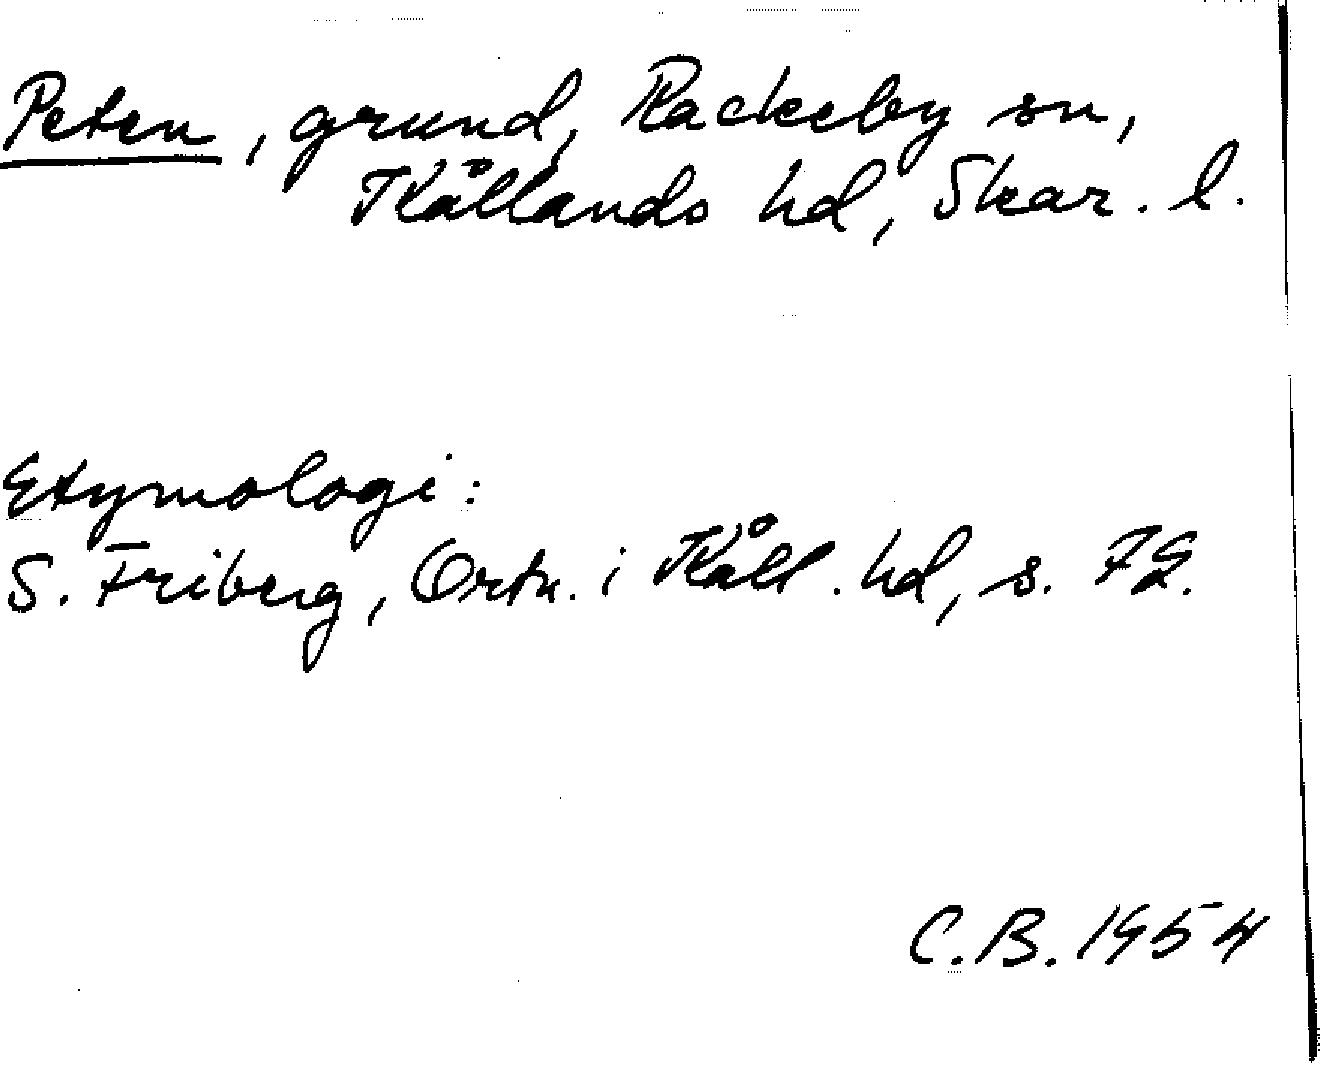 Peten, grund, Rackeby sn,
Kållands hd, Skar. l.
Etymologi:
S. Friberg, Ortn. i Kåll. hd, s. 72.
C.B. 1954